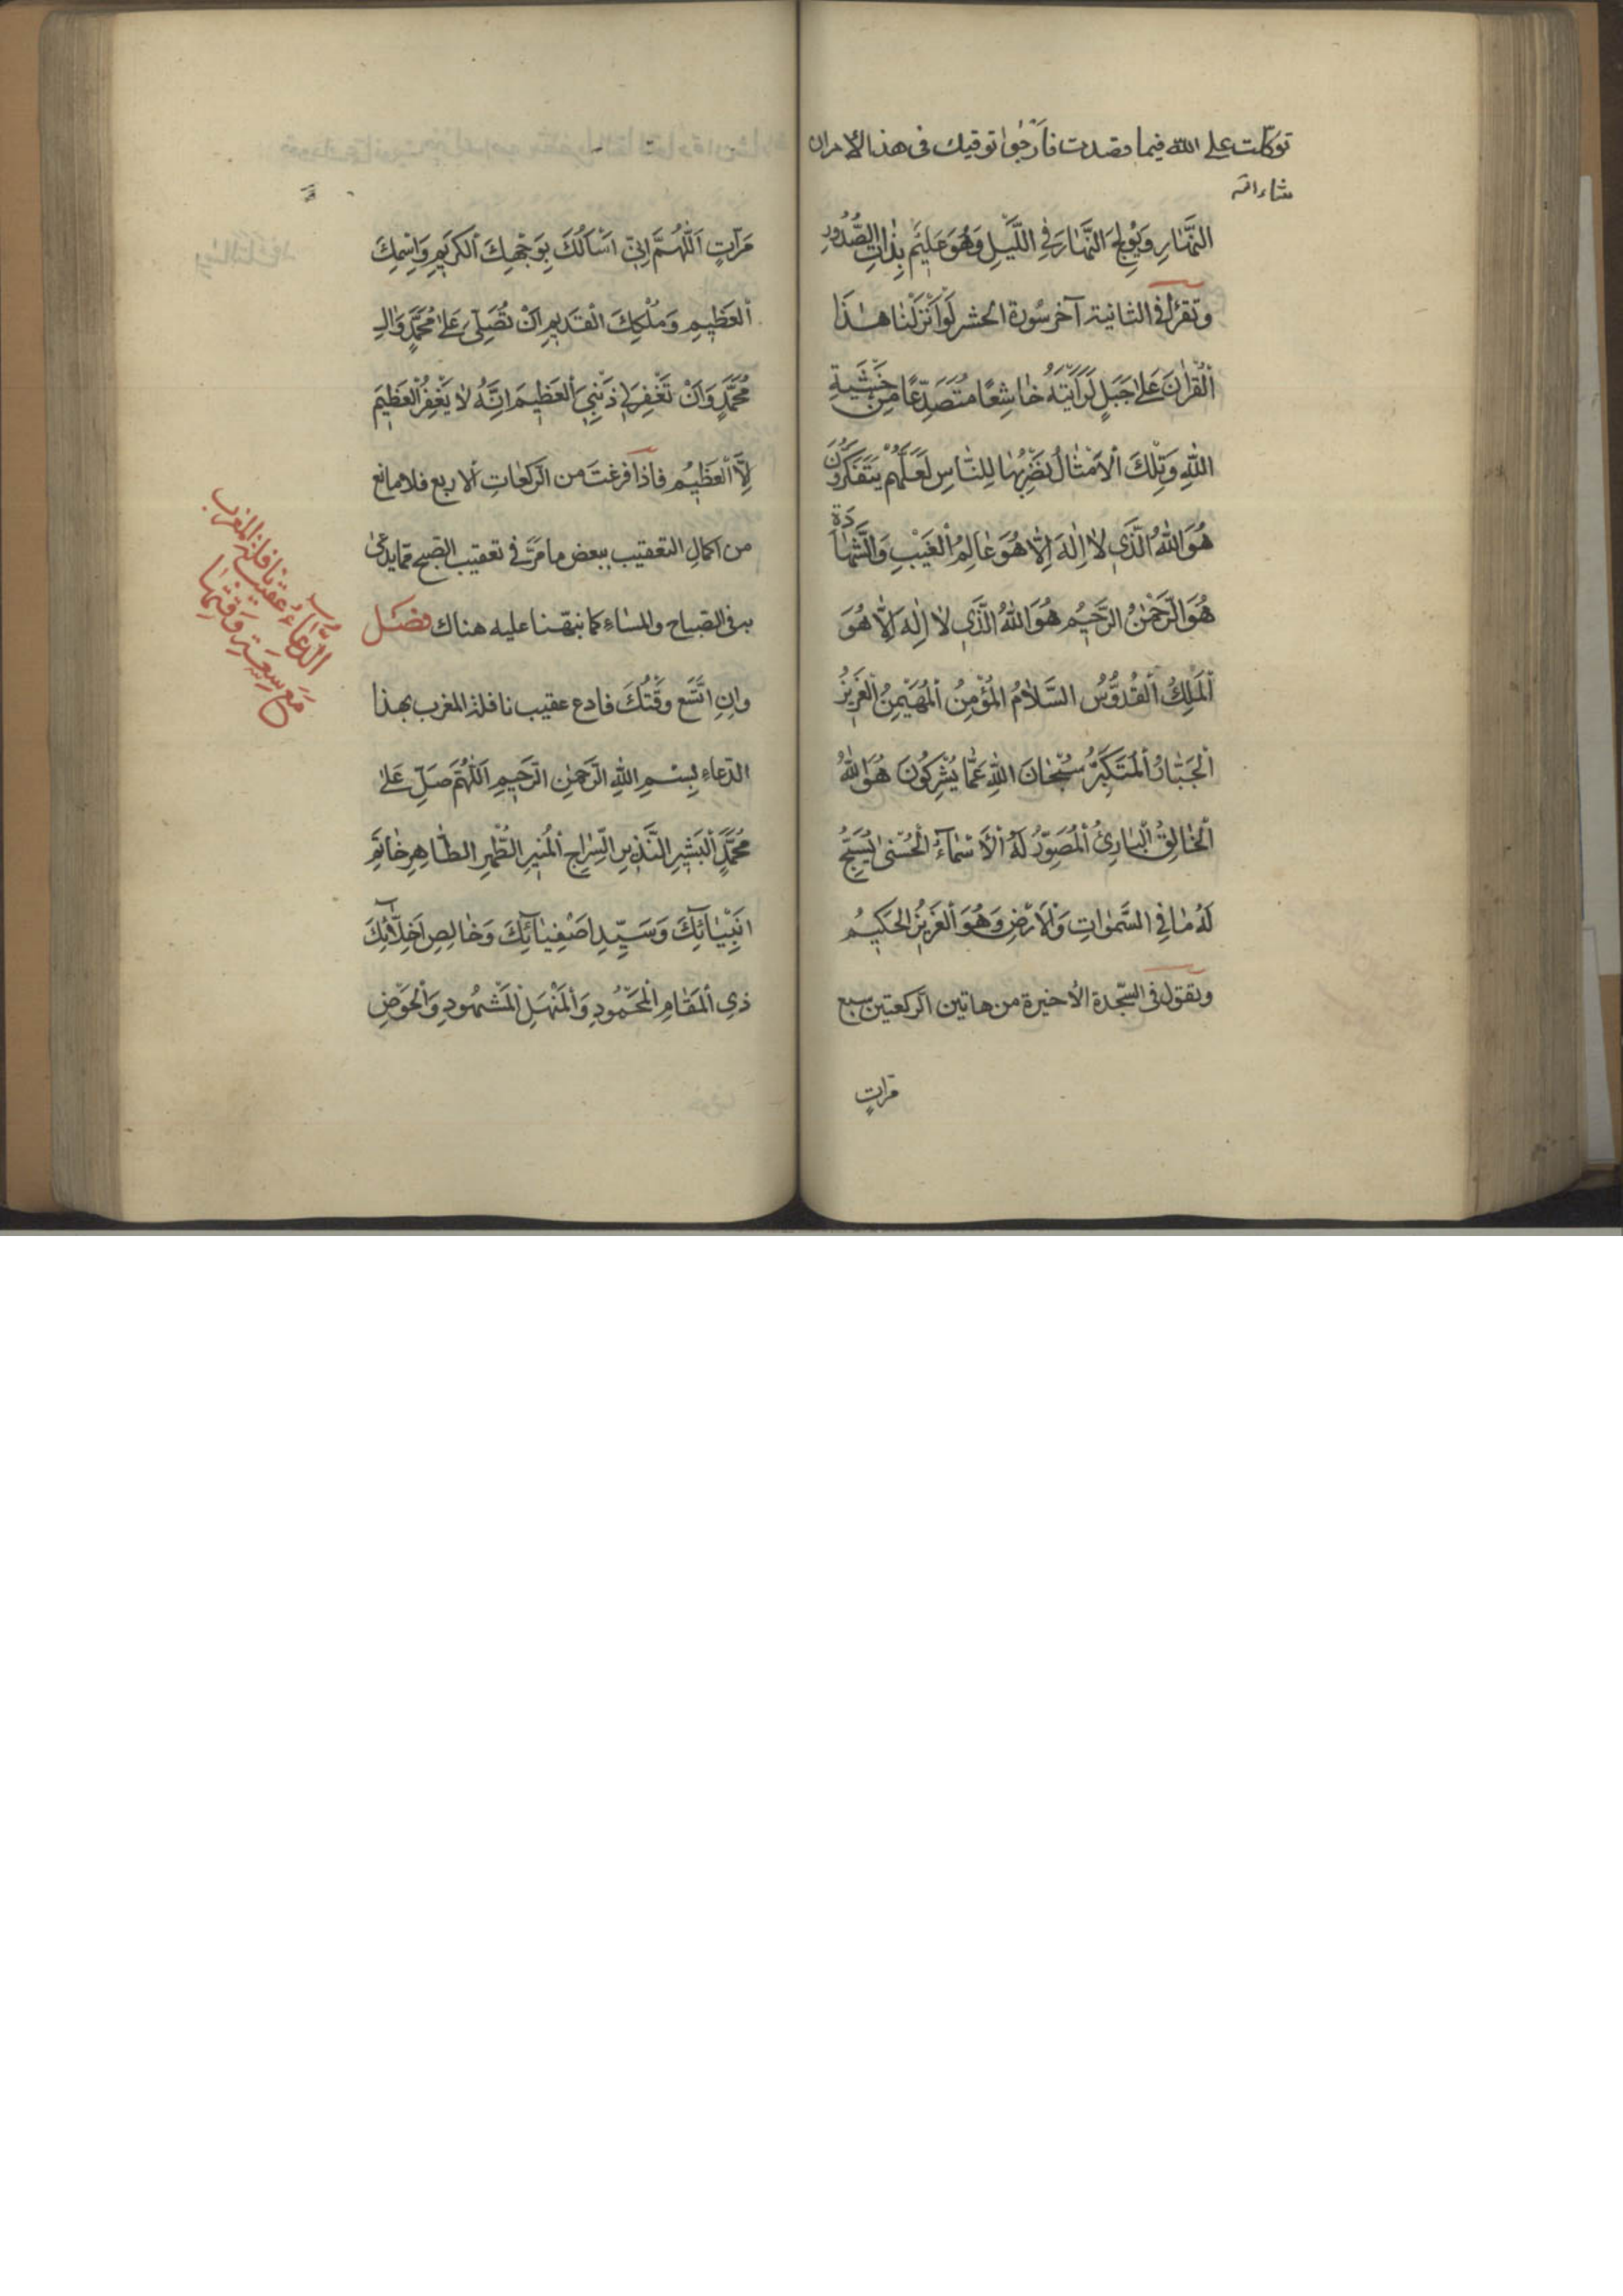 توكلت على الله فيما قصدت فارجوا توقيك فى هذا الامر ان
شاء الله
النَّهٰارِ وَيُولِجُ النَّهٰارَ فِي اللَّيْلِ وَهُوَ عَلِيمٌ بِذٰاتِ الصُّدُورِ
وتقرأ في الثانية آخر سُورة الحشر لَوْ اَنْزَلْنٰا هٰذَا
اَلْقُرْاٰنَ عَلىٰ جَبَلٍ لَرَاَيْتَهُ خٰاشِعًا مُتَصَدِّعًا مِنْ خَشْيَةِ
اللهِ وَتِلْكَ اْلاَمْثٰالُ نَضْرِبُهٰا لِلنّٰاسِ لَعَلَّهُمْ يَتَفَكَّرُونَ
هُوَ اللهُ الَّذِي لاٰ اِلٰهَ اِلاّٰ هُوَ عٰالِمُ الْغَيْبِ وَالشَّهٰادَةِ
هُوَ الرَّحْمٰنُ الرَّحِيمُ هُوَ اللهُ الَّذِي لاٰ اِلٰهَ اِلاّٰ هُوَ
اَلْمَلِكُ اَلْقُدُّوسُ السَّلاٰمُ الْمُؤْمِنُ اَلْمُهَيْمِنُ الْعَزِيزُ
اَلْجَبّٰارُ اَلْمُتَكَبِّرُ سُبْحٰانَ اللهِ عَمّٰا يُشْرِكُونَ هُوَ اللهُ
اَلْخٰالِقُ الْبٰارِئُ اَلْمُصَوِّرُ لَهُ اْلاَسْمٰآءُ الْحُسْنىٰ يُسَبِّحُ
لَهُ مٰا فِي السَّمٰوٰاتِ وَالْاَرْضِ وَهُوَ اَلْعَزِيزُ الْحَكِيمُ
وتقول في السّجدة الأخيرة من هاتين الركعتين سبع
مرّاتٍ
مَرّاتٍ اَللّٰهُمَّ اِنِّي اَسْاَلُكَ بِوَجْهِكَ اَلْكَرِيمِ وَاِسْمِكَ
اَلْعَظِيمِ وَمُلْكِكَ الْقَدِيمِ اَنْ تُصَلِّيَ عَلىٰ مُحَمَّدٍ وَاٰلِ
مُحَمَّدٍ وَاَنْ تَغْفِرَ لِي ذَنْبِيَ اَلْعَظِيمَ اِنَّهُ لاٰ يَغْفِرُ الْعَظِيمَ
اِلاَّ اَلْعَظِيمُ فاذا فرغتَ من الرّكعاتِ الاربع فلا مانع
من اكمال التعقيب ببعض ما مَرَّ في تعقيب الصّبح ممّا يدعىٰ
به في الصّباح والمسٰاءِ كما نبّهنا عليه هناك فصل
وانِ اتَّسَع وقْتُكَ فادع عقيب نافلة المغرب بهذا
الدّعاءِ بِسْمِ اللهِ الرَّحْمٰنِ الرَّحِيمِ اَللّٰهُمَّ صَلِّ عَلىٰ
مُحَمَّدٍ اَلْبَشِيرِ النَّذِيرِ السِّرٰاجِ اَلْمُنِيرِ الطُّهْرِ الطّٰاهِرِ خٰاتَمِ
اَنْبِيٰآئِكَ وَسَيِّدِ اَصْفِيٰآئِكَ وَخٰالِصِ اَخِلاّٰئِكَ
ذِي اَلْمَقٰامِ اَلْمَحْمُودِ وَالْمَنْهَلِ اَلْمَشْهُودِ وَالْحَوْضِ
الدُّعَاءُ عقيب نافلة المغرب
مَعَ سِعَةِ وَقْتِهٰا